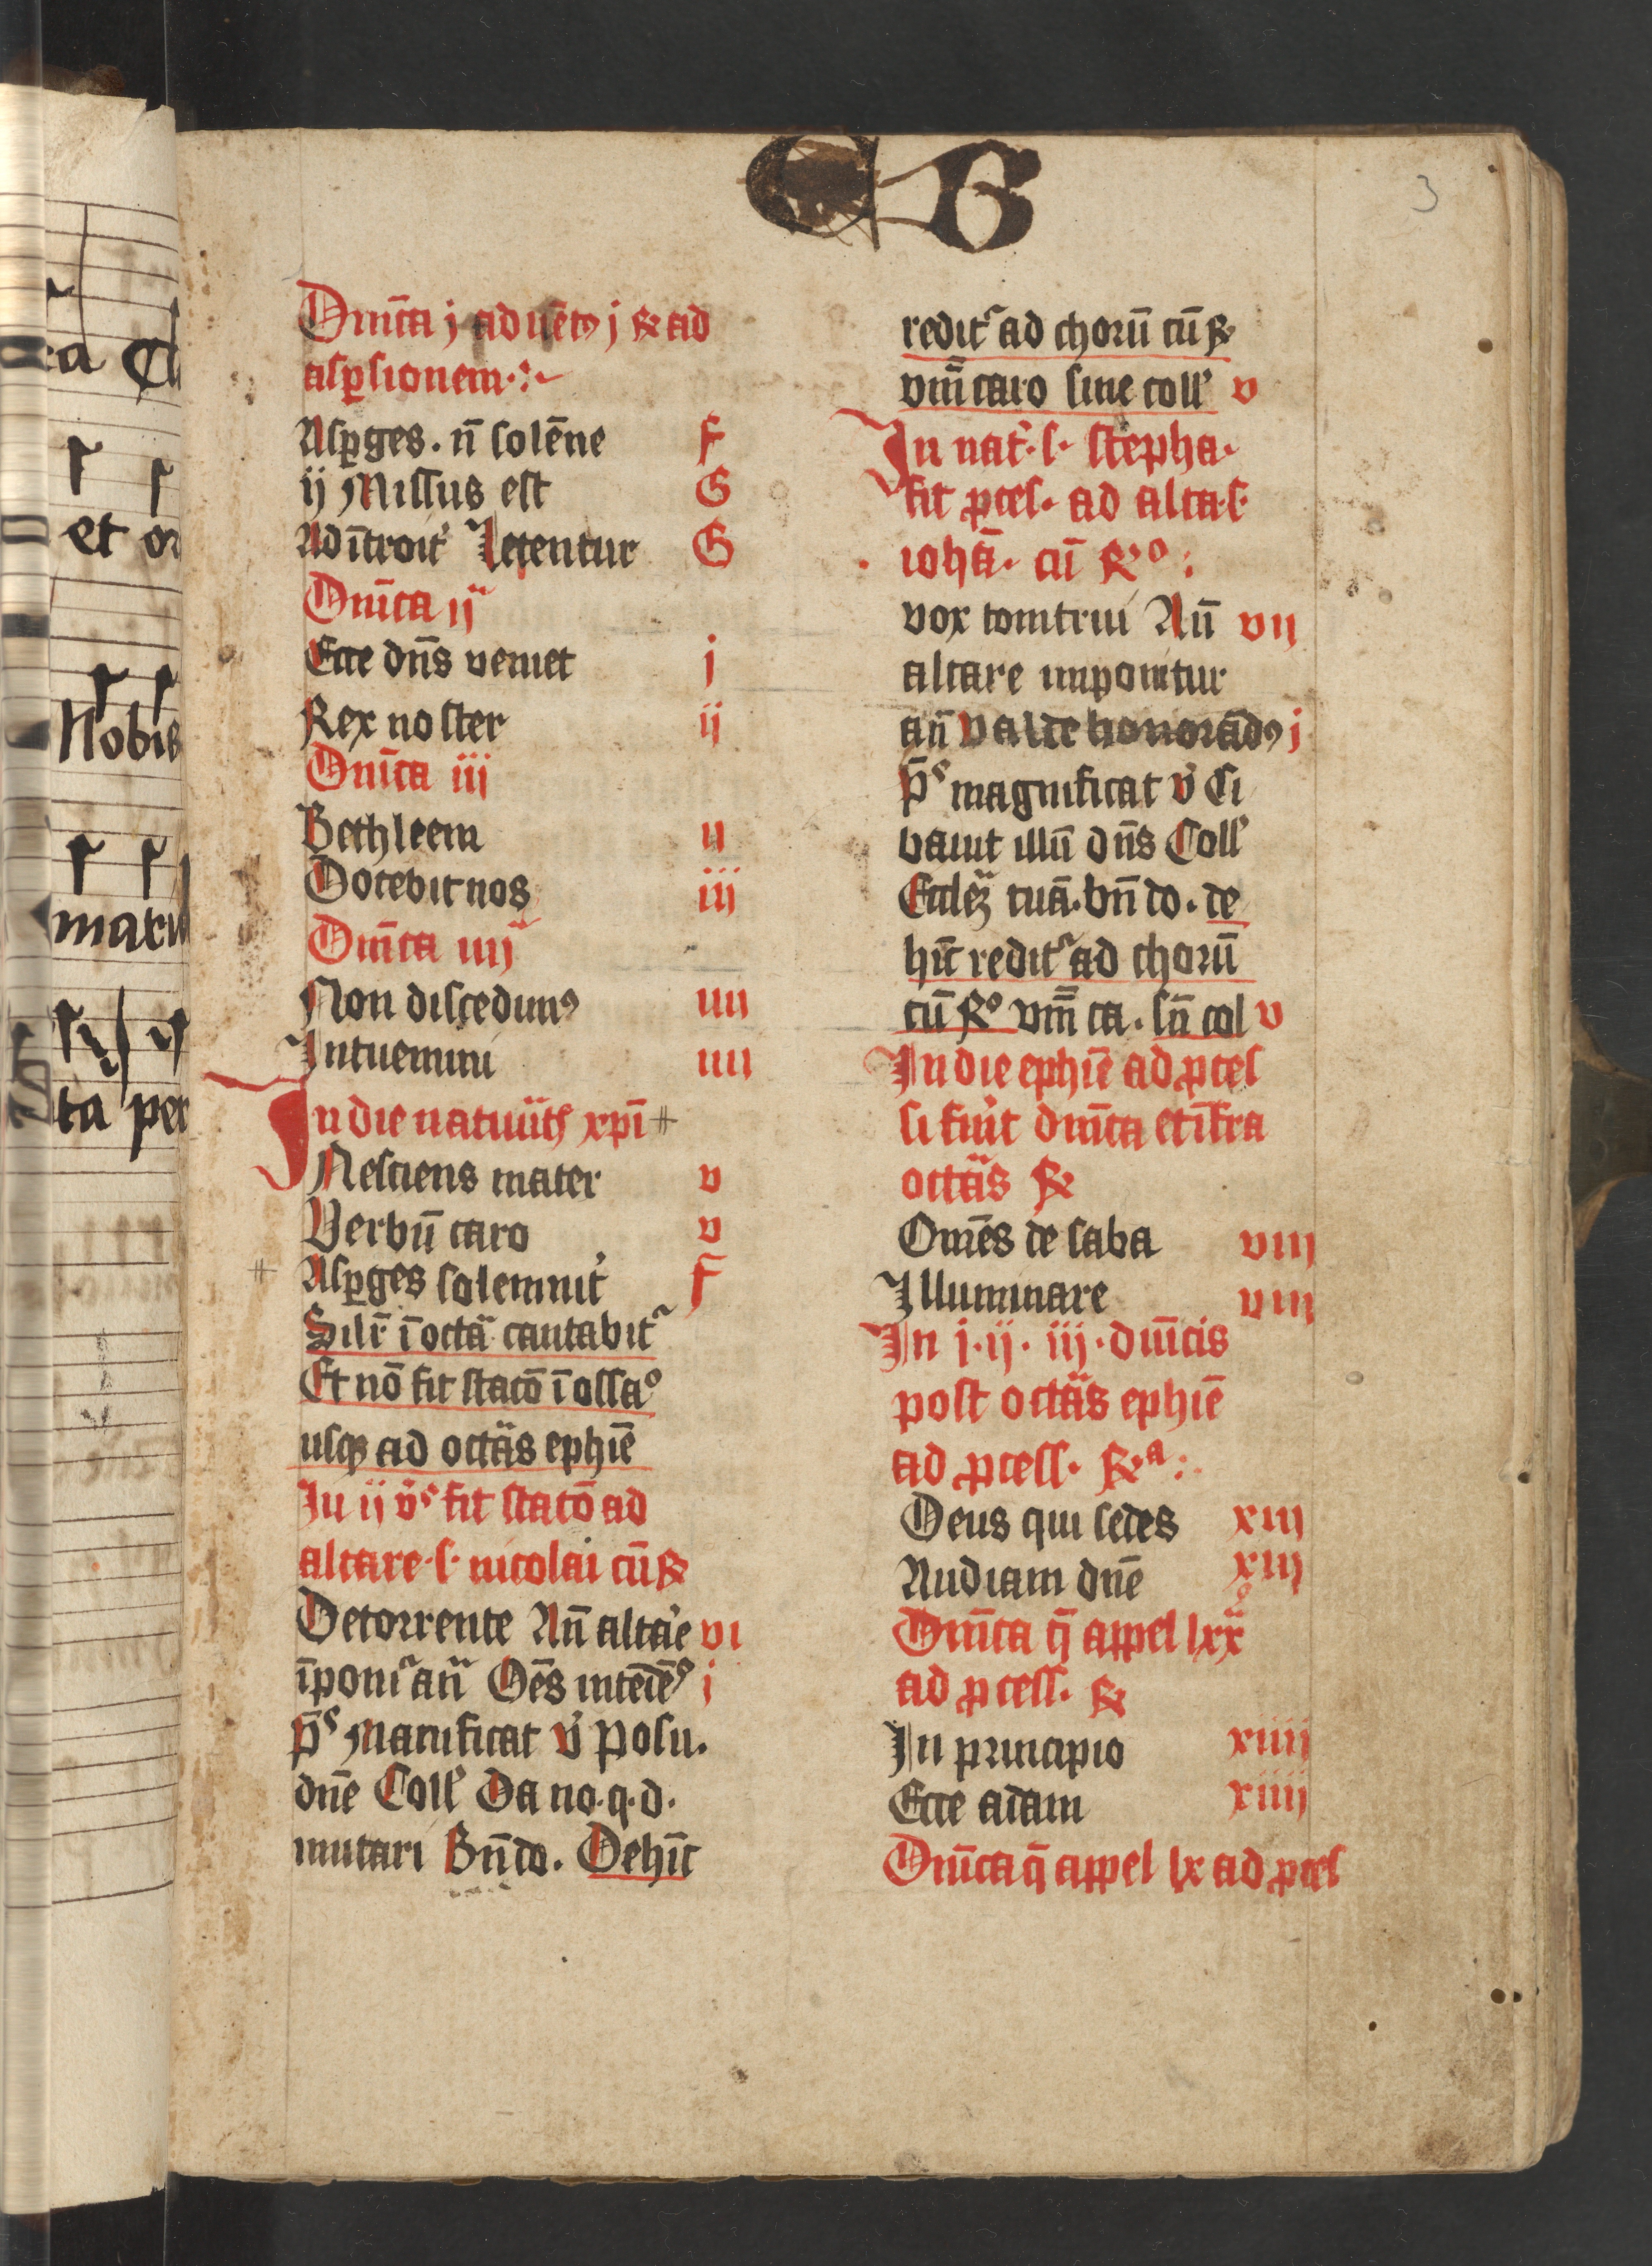 B
3
Dm̄ca j aduēt9 j ℞ ad
asꝑsionem
Asꝑges . n̄ solēne F
ij Missus est G
Ad ītroit' Letentur G
Dm̄ca ij
Ecce dn̄s veniet j
Rex noster ij
Dm̄ca iii
Bethleem ii
Docebit nos iij
Dm̄ca iiij
Non discedim9 iiii
Intuemini iiii
In die natiuit xp̄i #
Nesciens mater v
Verbū caro v
# Asꝑges solemnit' F
Silr̄ ī octā cantabit
Et nō fit stacō ī ossao
usqꝫ ad octās ephīe
In ij vs fit stacō ad
altare · s · nicolai cū ℞
De torrente An̄ altae vi
īponit an̄ Oēs intēdē j
p̄s Manificat v̄ Posu .
dn̄e Coll' Da no · q · d ·
mutari Bn̄do . Dehīc
redit ad chorū cū ℞
vm̄ caro sine coll' v
In nat' · s · stepha ·
fit ꝓces · ad alta · s ·
iohā · cū ℞o :
vox tonitrui An̄ vij
altare imponitur
an̄ valde honorād9 j
p̄s magnificat v̄ Ci
bauit illū dn̄s Coll'
Eccleꝫ tuā . bn̄do . de
hīc redit ad chorū
cū ℞o vm̄ ca . sn̄ col v
In die ephīe ad ꝓces
si fuit dm̄ca et īfra
octās ℞
Om̄es de saba viij
Illuminare viij
In j · ij · iij · dm̄cis
post octās ephīe
ad ꝓcess · ℞a :
Deus qui sedes xiij
Audiam dn̄e xiij
Dm̄ca q̄ appel lxx
ad ꝓcess · ℞
In principio xiiij
Ecce adam xiiij
Dm̄ca q̄ appel lx ad ꝓces
ca
et or
Nobis
ta per